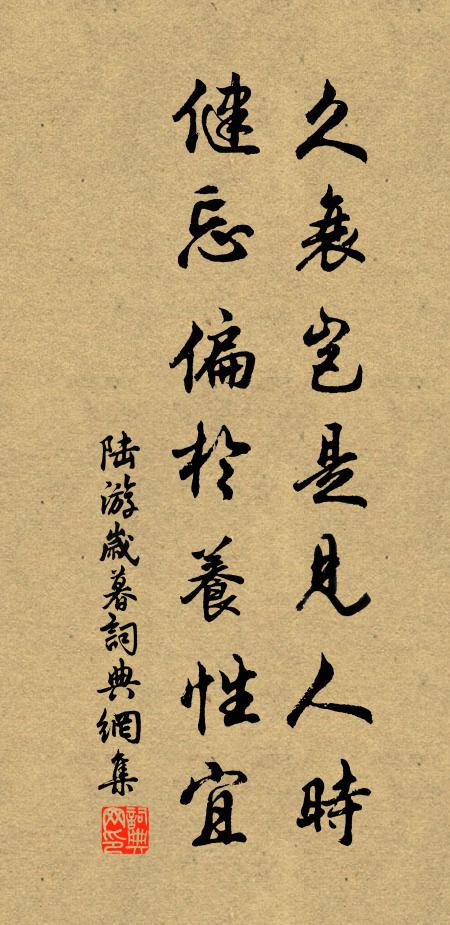 久衰岂是見人時
健忘偏於養性宜
陆游歲暮詞典網集
詞典网印